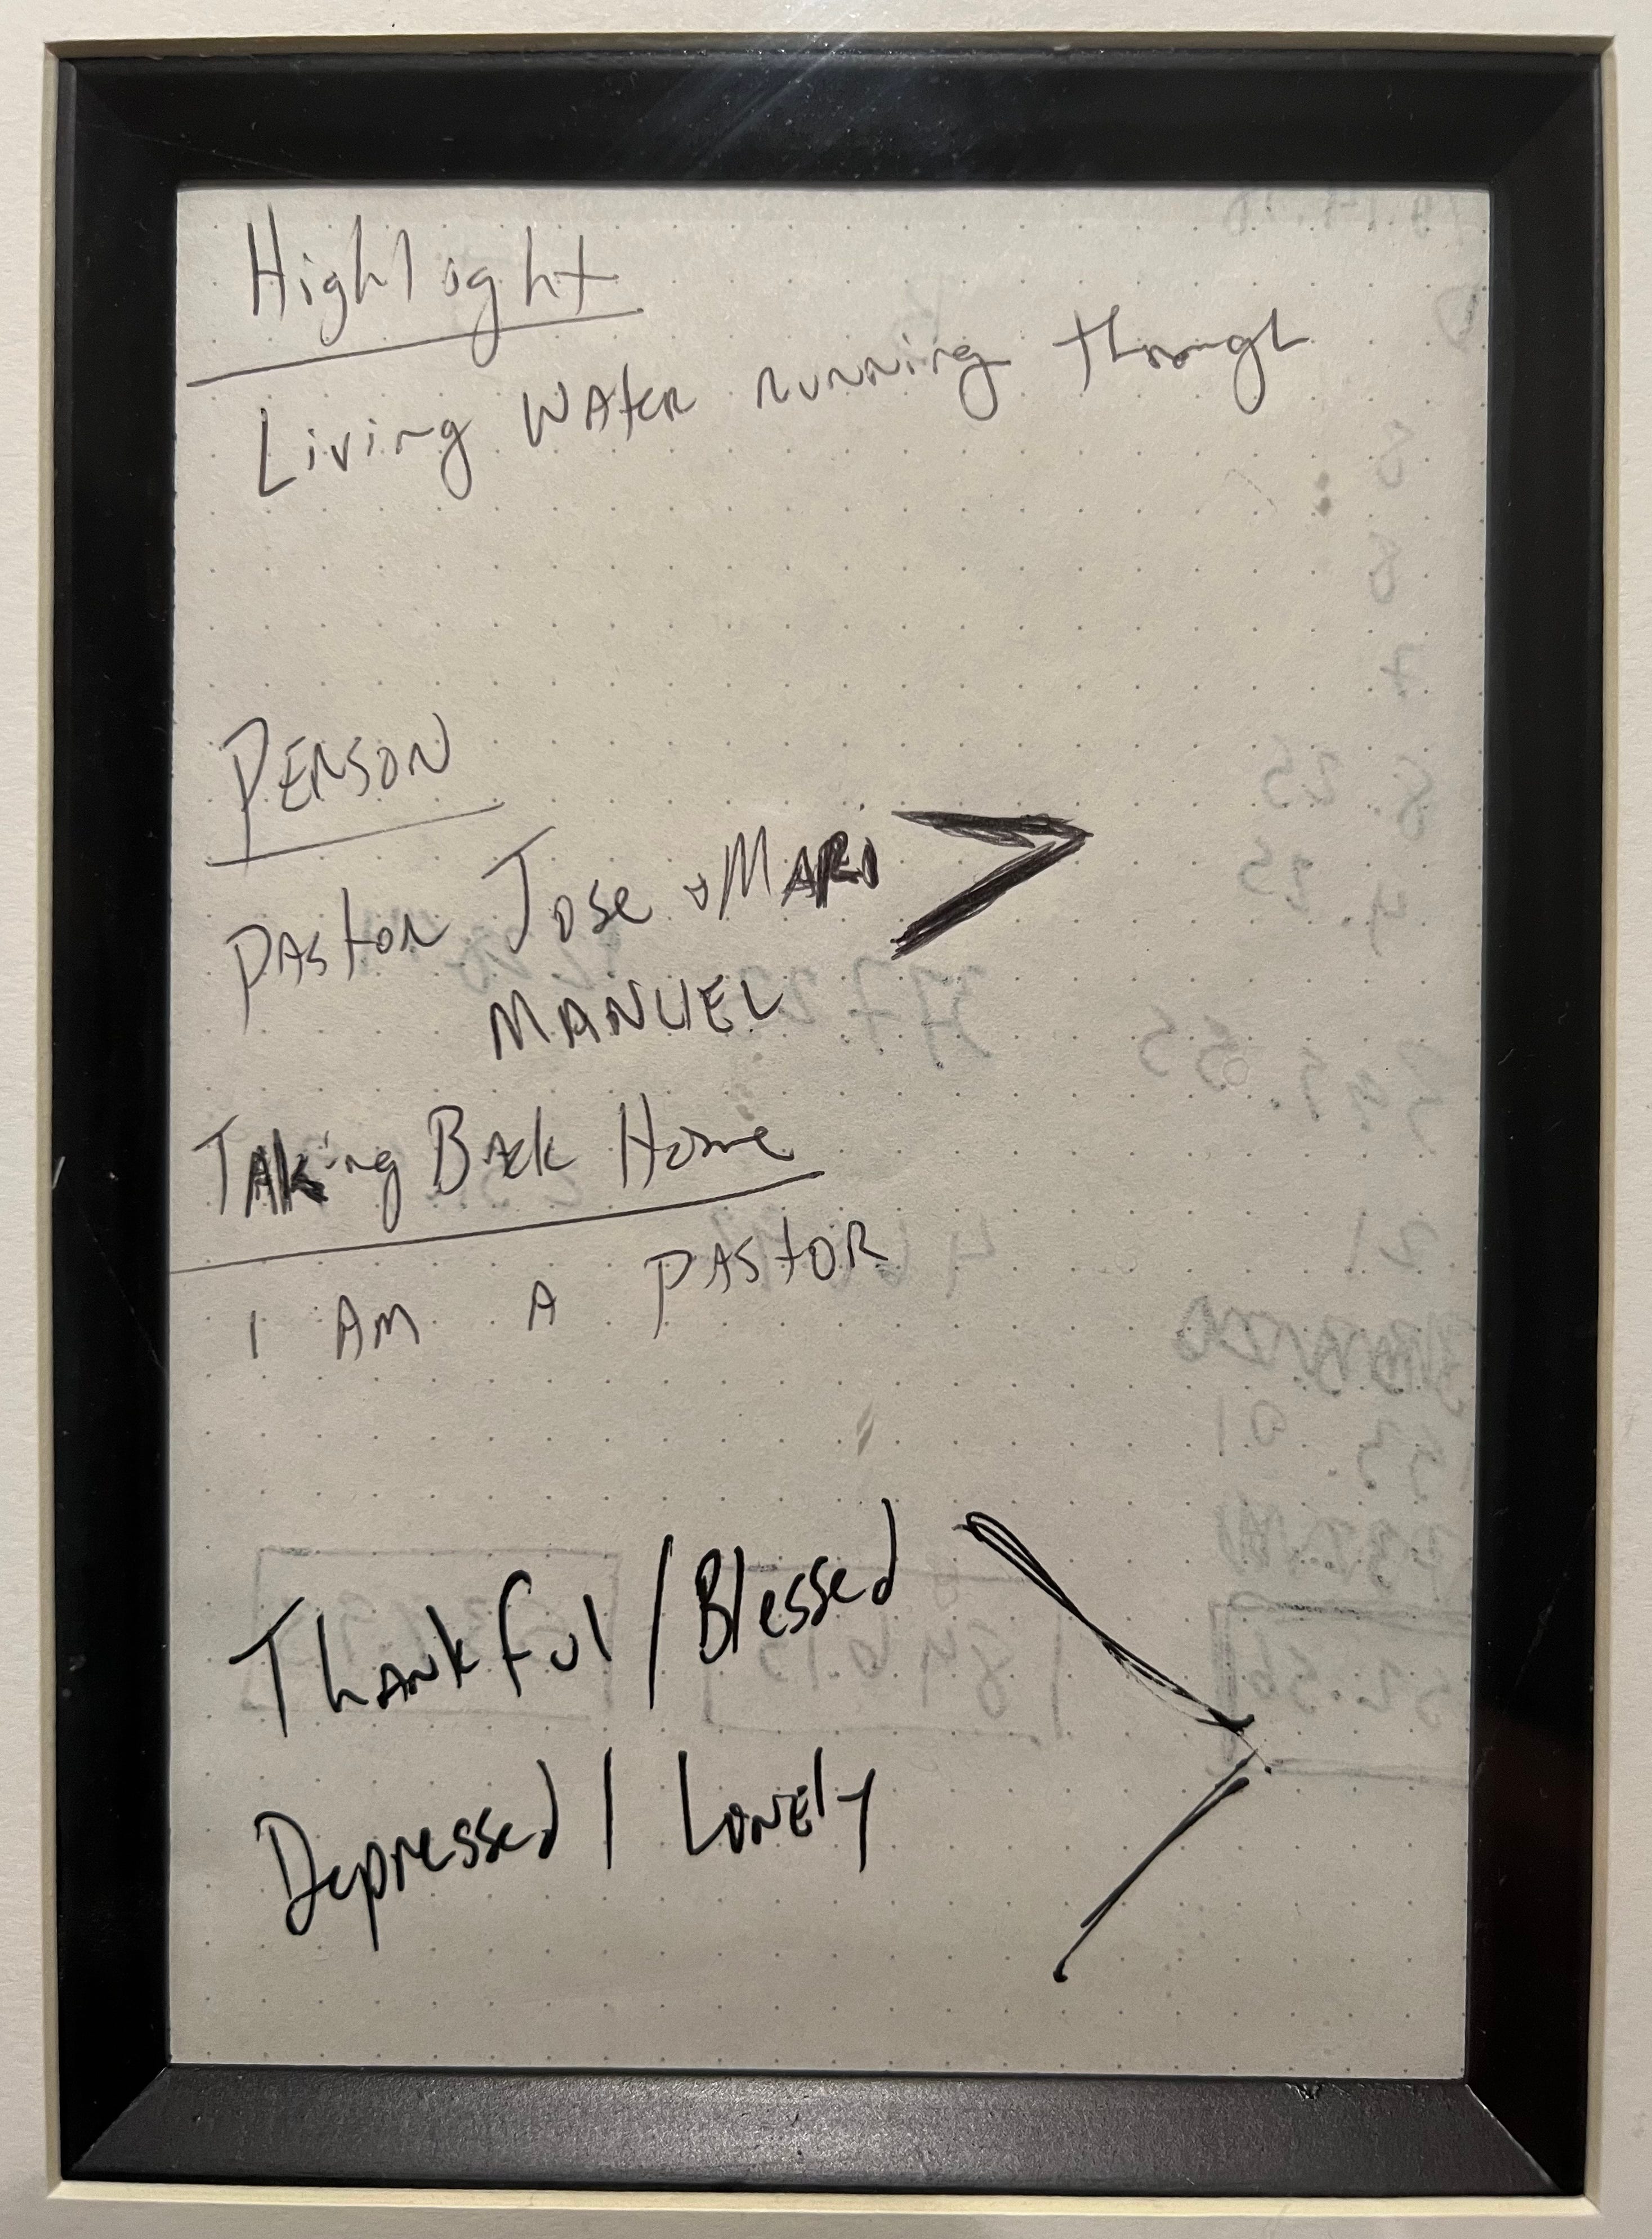 Highlight
Living Water running through
Person
Pastor Jose + Mari >
Manuel
Taking Back Home
I AM A PASTOR
Thankful / Blessed
Depressed / Lonely